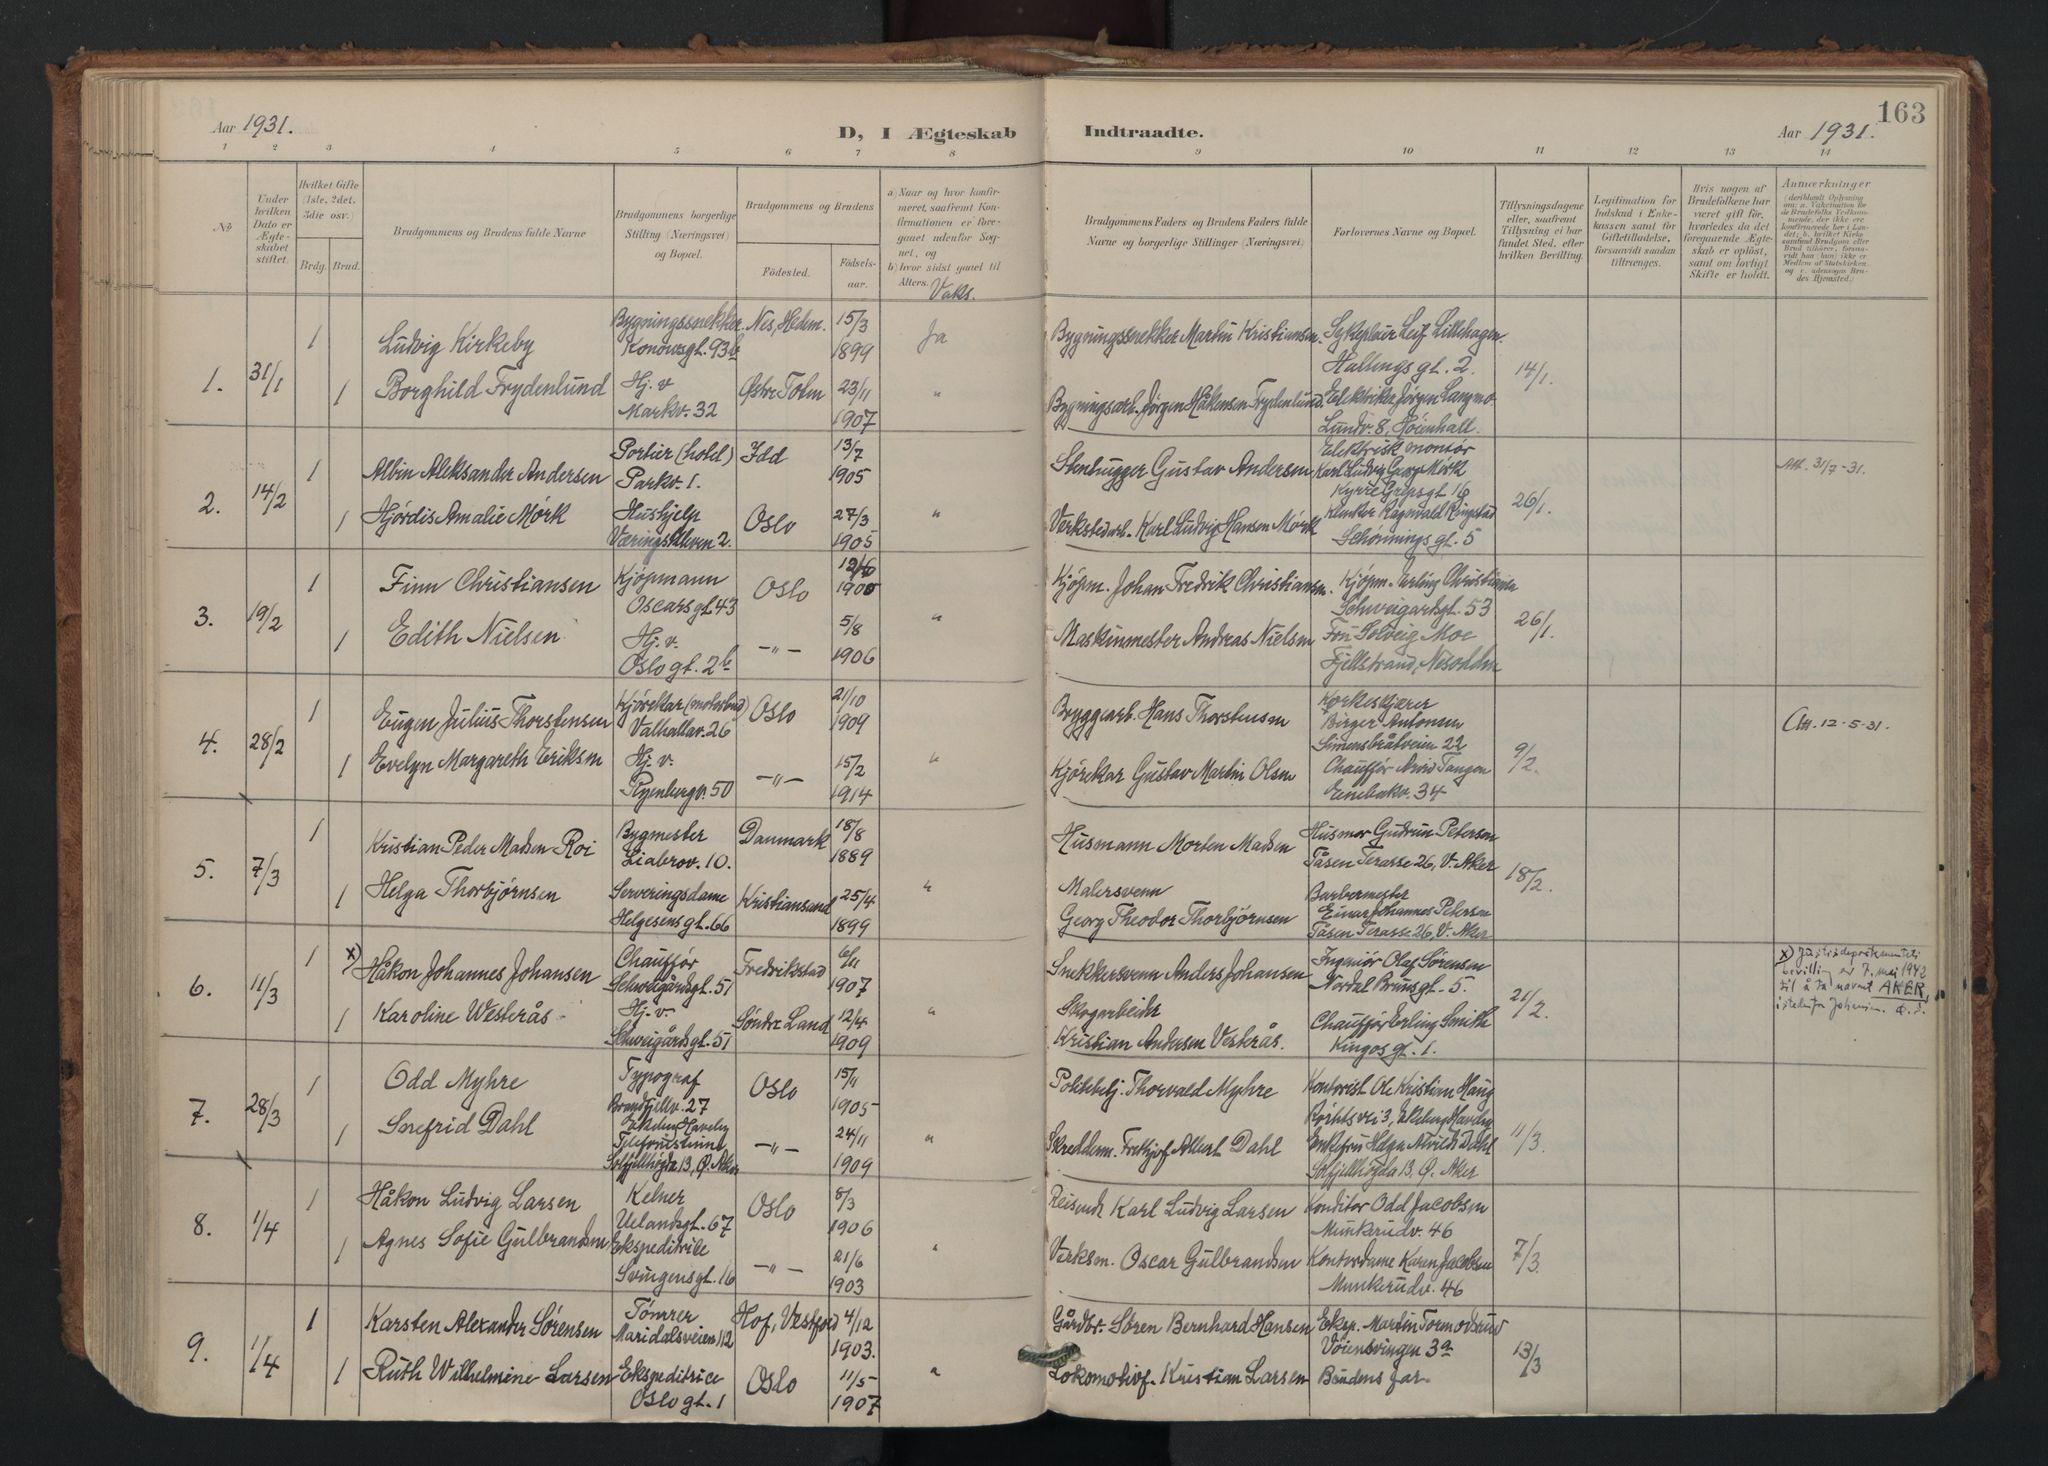 163
Aar 1931.
D, I Ægteskab Indtraadte.
Aar 1931.
1 2 3 4 5 6 7 8 9 10 11 12 13 14
No
Under hvilken Dato er Ægteskabet stiftet.
Hvilket Gifte (1ste, 2det, 3die osv.)
Brdg. Brud.
Brudgommens og Brudens fulde Navne
Brudgommens borgerlige Stilling (Næringsvei) og Bopæl.
Brudgommens og Brudens
Fødested. Fødselsaar.
a) Naar og hvor konfirmeret, saafremt Konfirmationen er foregaaet udenfor Sognet, og
b) hvor sidst gaaet til Alters.
Vaks.
Brudgommens Faders og Brudens Faders fulde Navne og borgerlige Stillinger (Næringsvei)
Forlovernes Navne og Bopæl.
Tillysningsdagene eller, saafremt Tillysning ei har fundet Sted, efter hvilken Bevilling.
Legitimation for Indskud i Enkekassen samt for Giftetilladelse, forsaavidt saadan tiltrænges.
Hvis nogen af Brudefolkene har været gift før, hvorledes da det foregaaende Ægteskab er opløst, samt om lovligt Skifte er holdt.
Anmærkninger
1. 31/1
1 Ludvig Kirkeby Bygningssnekker Konowsgt. 93b Nes, Hedm. 15/3 1899 Ja Bygningssnekker Martin Kristiansen Sykepleier Leif Lillehagen Hallingsgt. 2. 14/1.
1 Borghild Frydenlund Hj. v Markv. 32 Østre Toten 23/11 1907 " Bygningsarb. Jørgen Håkensen Frydenlund. Elektriker Jørgen Langmo Lundv. 8, Høienhall.
2. 14/2
1 Albin Aleksander Andersen Portier (hotel) Parkv. 1. Idd 13/7 1905 Stenhugger Gustav Andersen Elektrisk montør Karl Ludvig Georg Mørk Kyrre Grepsgt 16 26/1. Att. 31/7-31.
1 Hjørdis Amalie Mørk Hushjelp Væringskleven 2. Oslo 27/3 1905 " Verkstedarb. Karl Ludvig Hansen Mørk Ragnvald Ringstad Schønningsgt. 5
3. 19/2
1 Finn Christiansen Kjøpmann Oscarsgt. 43 Oslo 12/6 1900 Kjøpm. Johan Fredrik Christiansen. Kjøpm. Erling Christiansen Schweigaardsgt. 53 26/1.
1 Edith Nielsen Hj. v. Oslogt. 2b -"- 5/8 1906 " Maskinmester Andreas Nielsen Fru Solveig Moe Fjellstrand, Nesodden
4. 28/2
1 Eugen Julius Thorstensen Kjørekar (motorbud) Valhallav. 26 Oslo 21/10 1909 Bryggearb. Hans Thorstensen Korkeskjærer Birger Antonsen Simensbråtveien 22 9/2. Att. 12-5-31.
1 Evelyn Margareth Eriksen Hj. v. Ryenbergv. 50 -"- 15/2 1914 " Kjørekar Gustav Martin Olsen Chauffør Arvid Tangen Enebakv. 34
5. 7/3
1 Kristian Peder Madsen Roi Bygmester Liabrov. 10. Danmark 18/8 1889 Husmann Morten Madsen Husmor Gudrun Petersen Tåsen Terasse 26, V. Aker 18/2.
1 Helga Thorbjørnsen Serveringsdame Helgesensgt. 66 Kristiansand 25/4 1899 " Malersvenn Georg Theodor Thorbjørnsen Barbermester Einar Johannes Petersen Tåsen Terasse 26, V. Aker
6. 11/3
1 x) Håkon Johannes Johansen Chauffør Schweigårdsgt. 51 Fredrikstad 6/11 1907 Snekkersvenn Anders Johansen Ingeniør Olaf Sørensen Nordal Brunsgt. 5. 21/2.
x) Justisdepartementets bevilling av 7. mai 1942 til å ta navnet AKER, istedenfor Johansen.
1 Karoline Westerås Hj. v. Schweigårdsgt. 51 Søndre Land 12/4 1909 " Skogarbeider Kristian Andersen Vesterås. Chauffør Erling Smith Kingosgt. 1.
7. 28/3
1 Odd Myhre Typograf Brandfjellv. 27 Oslo 15/11 1905 Politibetj. Thorvald Myhre Kontorist Ole Kristian Haug 11/3.
1 Snefrid Dahl Solfjellhøgda 13, Ø. Aker -"- 24/11 1909 " Skreddem. Fritjof Albert Dahl Enkefru Dahl Solfjellhøgda 13, Ø. Aker
8. 1/4
1 Håkon Ludvig Larsen Kelner Uelandsgt. 67 Oslo 8/3 1906 Reisende Karl Ludvig Larsen Konditor Odd Jacobsen Munkerudv. 46 7/3.
1 Agnes Sofie Gulbrandsen Ekspeditrice Svingensgt. 16 -"- 21/6 1903 " Verksm. Oscar Gulbrandsen Kontordame Karen Jacobsen Munkerudv. 46
9. 1/4
1 Karsten Alexander Sørensen Tømrer Maridalsveien 112 Hof, Vestfold 4/12 1903. Gårdbr. Søren Bernhard Hansen Eksp. Martin Tormodsrud Vøiensvingen 3a 13/3
1 Ruth Wilhelmine Larsen Ekspeditrice Oslogt. 1 Oslo 11/5 1907 " Lokomotivf. Kristian Larsen Brudens far